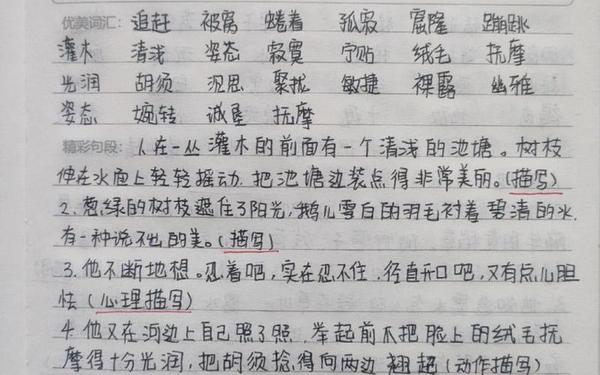 优美词汇: 追赶 被窝 蜷着 孤寂 窟窿 蹦跳
灌木 清浅 姿态 寂寞 宁贴 绒毛 抚摩
光润 胡须 沉思 聚拢 敏捷 裸露 幽雅
姿态 婉转 诚恳 抚摩
精彩句段: 1.在一丛灌木的前面有一个清浅的池塘。树枝
伸在水面上轻轻摇动,把池塘边装点得非常美丽。(描写)
2.葱绿的树枝遮住了阳光,鹅儿雪白的羽毛衬着碧清的水,
有一种说不出的美。(描写)
3.他不断地想。忍着吧,实在忍不住,径直开口吧,又有点儿胆
怯(心理描写)
4.他又在河边上自己照了照,举起前爪把脸上的绒毛抚
摩得十分光润,把胡须捻得向两边翘起(动作描写)